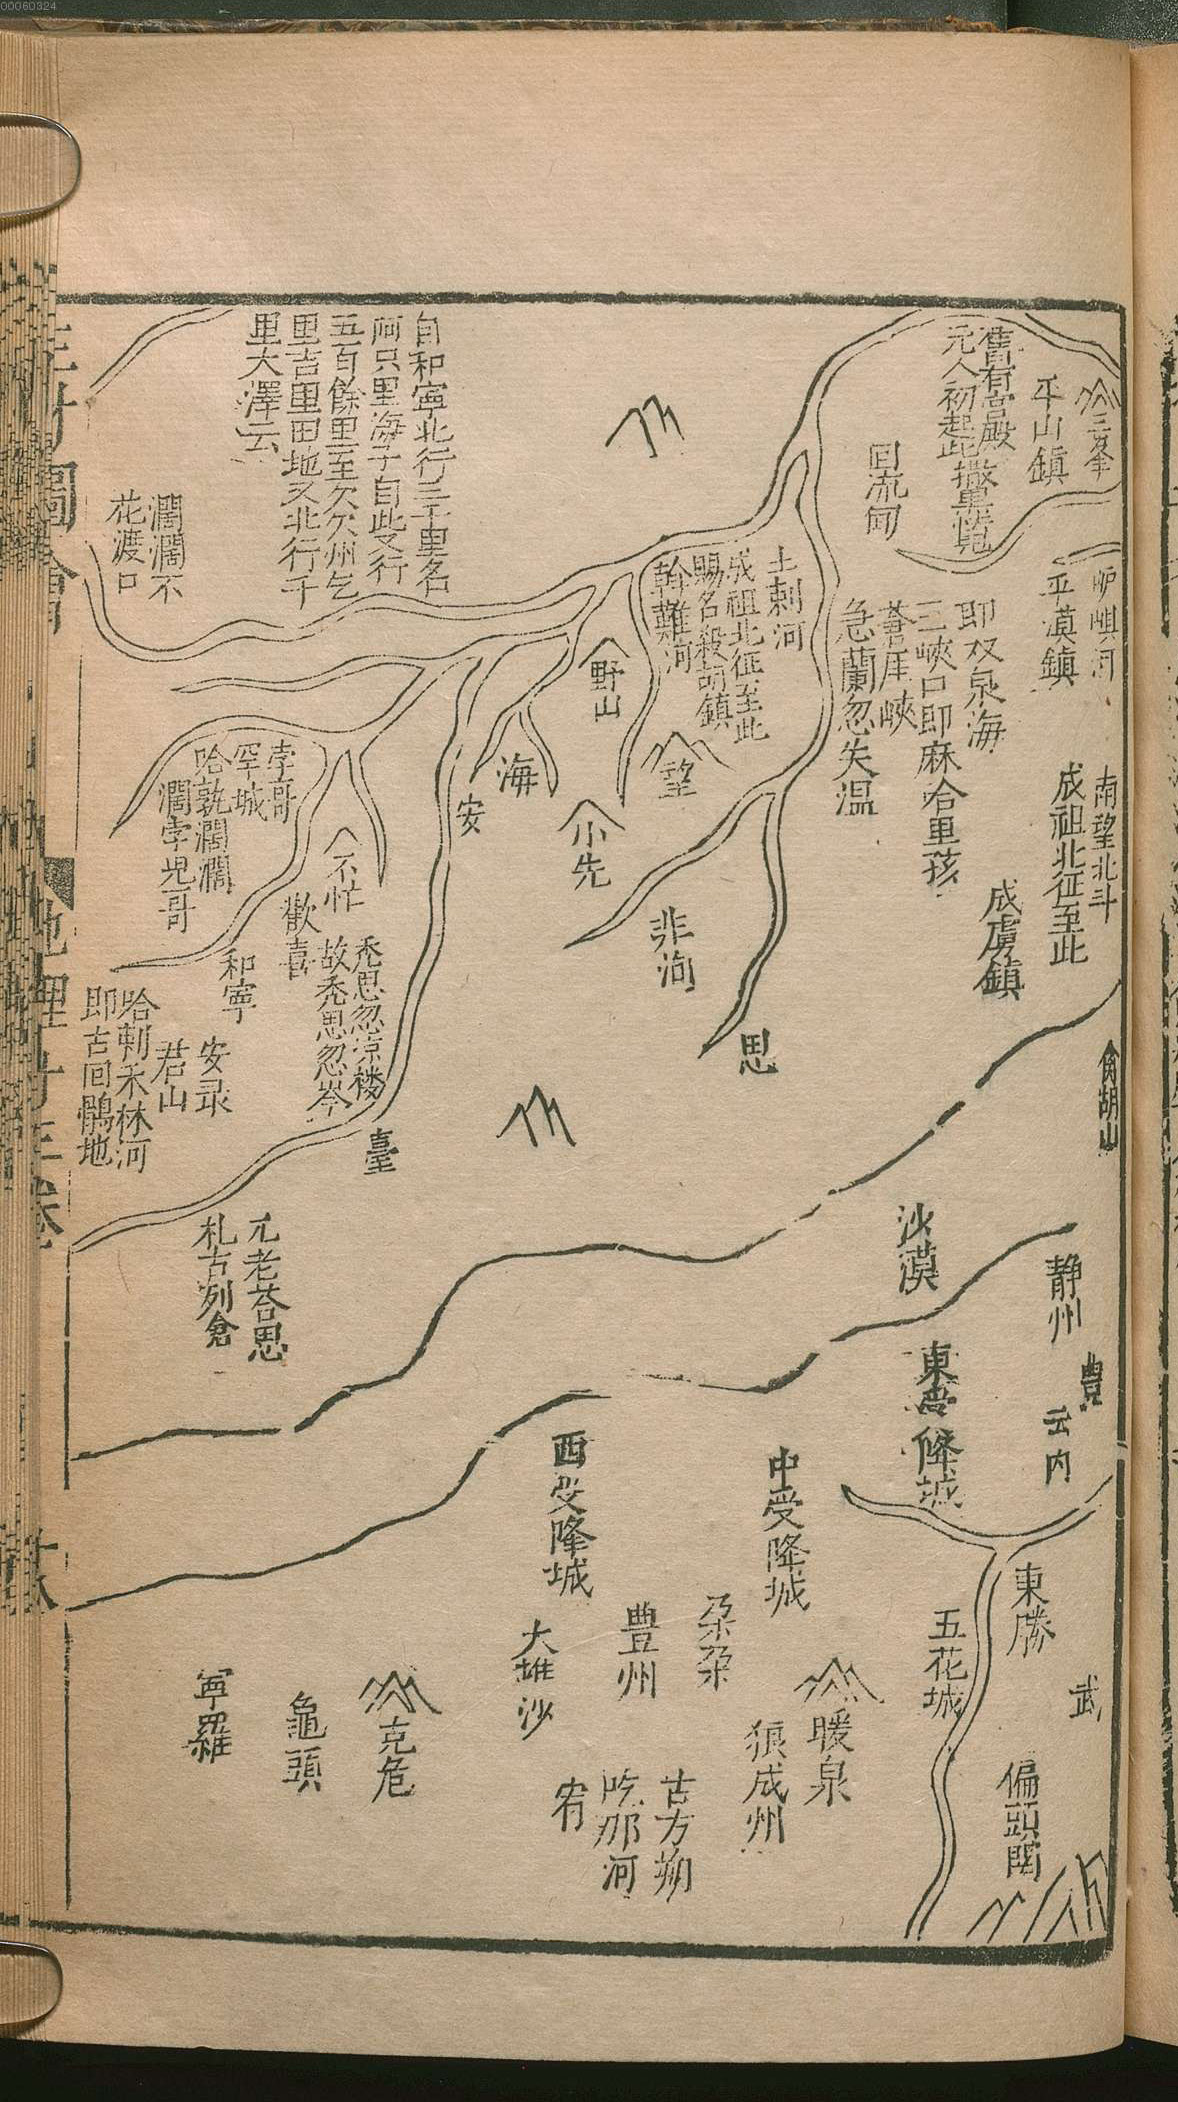 00060324
三峯
平山鎮
舊有宮殿
元人初起此撒里怯兒
回流甸
平漠鎮
南望北斗
成祖北征至此
成虜鎮
即双泉海
三峽口即麻哈里孩
蒼厓峽
急蘭忽失温
土剌河
成祖北征至此
賜名殺胡鎮
斡難河
望
野山
小先
海
安
非洵
思
自和寧北行三千里名
阿只里海子自此又行
五百餘里至欠欠州乞
里吉里田地又北行千
里大澤云
濶濶不
花渡口
孛哥
罕城
哈敦濶濶
濶孛児哥
不忙
歡喜
禿思忽凉楼
故禿思忽岺
和寧
安录
君山
哈剌禾林河
即古回鶻地
臺
元老苔思
札古列倉
禽胡山
沙漠
静州
豊
云内
東受降城
中受降城
西受降城
東勝
五花城
武
偏頭関
暖泉
狼成州
朶朶
豊州
大堆沙
古方朔
吃那河
宥
克危
龜頭
寧羅
三才圖會
地理十三卷